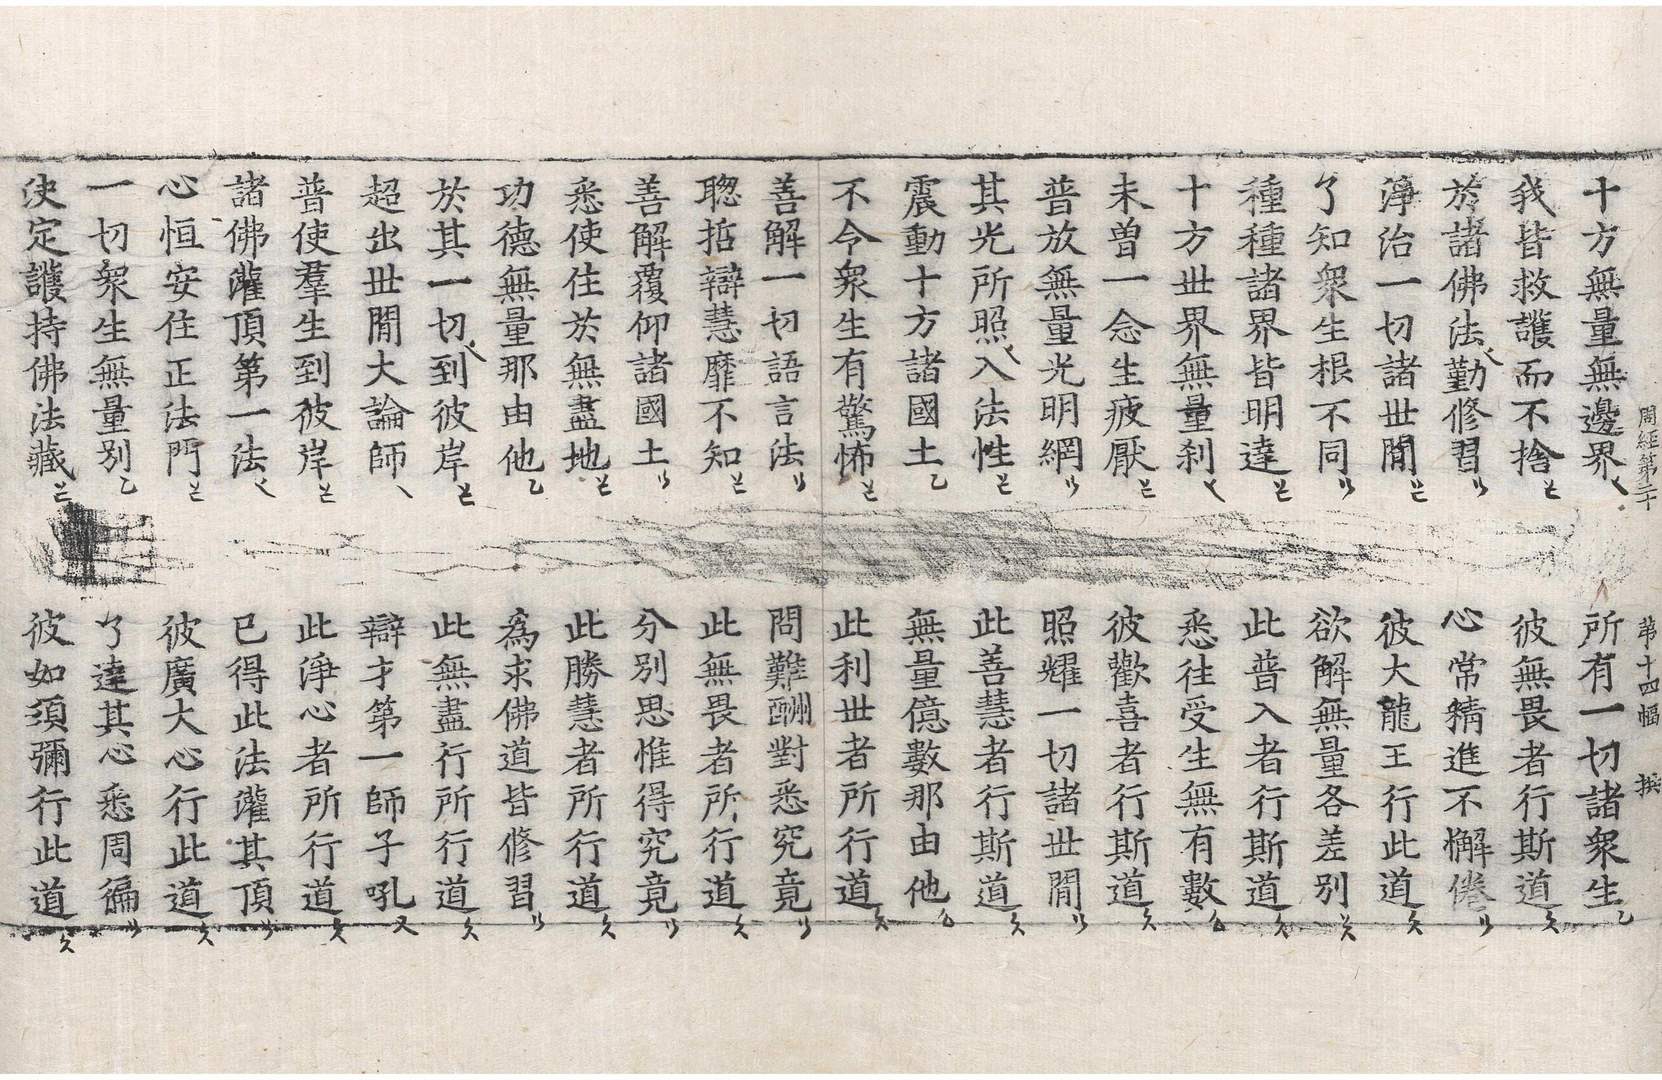 周經第二十　第十四幅
十方無量無邊界　所有一切諸衆生
我皆救護而不捨　彼無畏者行斯道
於諸佛法勤修習　心常精進不懈倦
淨治一切諸世間　彼大龍王行此道
了知衆生根不同　欲解無量各差別
種種諸界皆明達　此普入者行斯道
十方世界無量刹　悉往受生無有數
未曾一念生疲厭　彼歡喜者行斯道
普放無量光明網　照耀一切諸世間
其光所照入法性　此善慧者行斯道
震動十方諸國土　無量億數那由他
不令衆生有驚怖　此利世者所行道
善解一切語言法　問難酬對悉究竟
聦哲辯慧靡不知　此無畏者所行道
善解覆仰諸國土　分別思惟得究竟
悉使住於無盡地　此勝慧者所行道
功德無量那由他　爲求佛道皆修習
於其一切到彼岸　此無盡行所行道
超出世間大論師　辯才第一師子吼
普使羣生到彼岸　此淨心者所行道
諸佛灌頂第一法　已得此法灌其頂
心恒安住正法門　彼廣大心行此道
一切衆生無量別　了達其心悉周徧
決定護持佛法藏　彼如須彌行此道